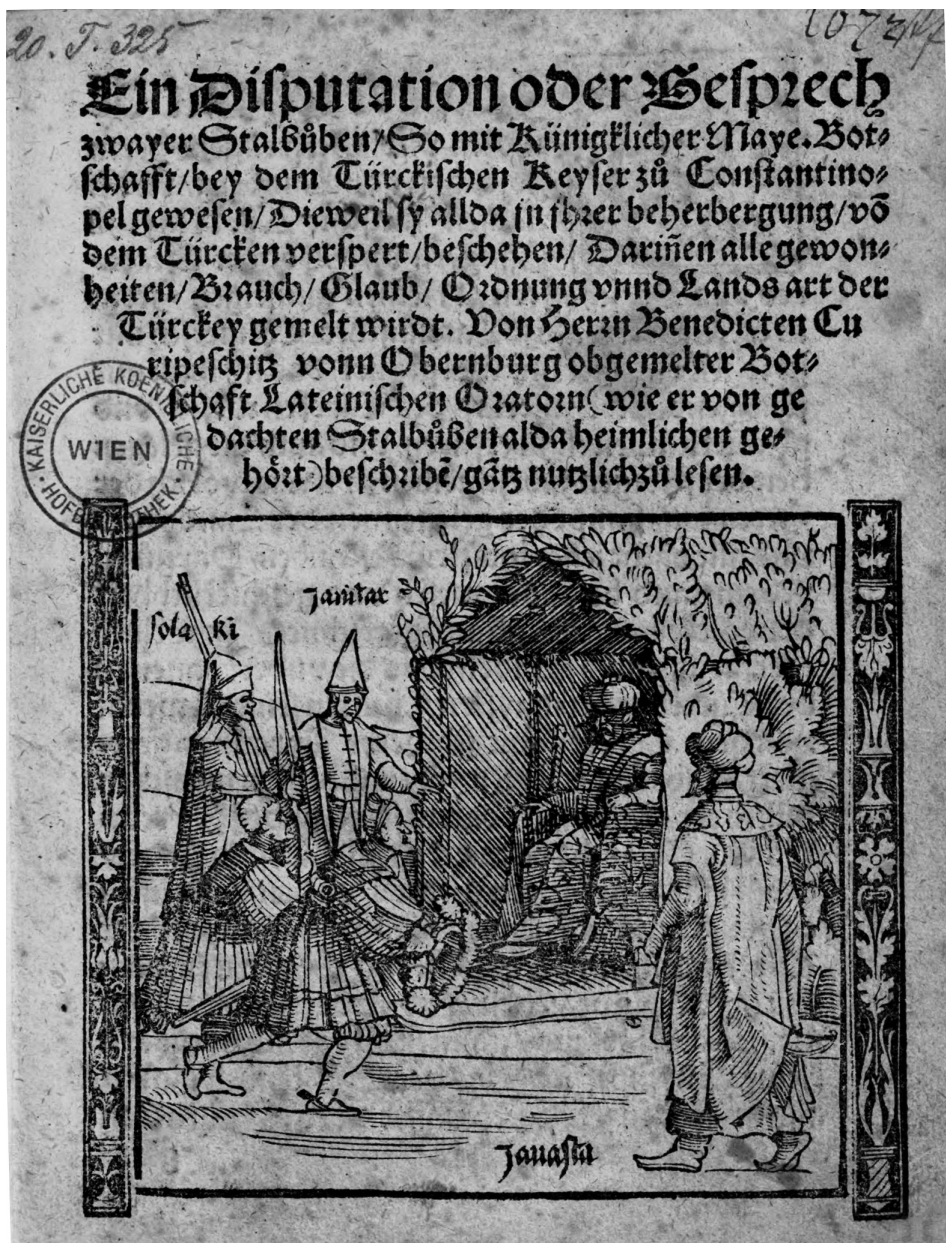 20. T. 325
Ein Disputation oder Gesprech
zwayer Stalbůben/ So mit Künigklicher Maye. Bot⸗
schafft/ bey dem Türckischen Keyser zů Constantino⸗
pel gewesen/ Dieweil sy allda jn jhrer beherbergung/ vō
dem Türcken verspert/ beschehen/ Dariñen alle gewon⸗
heiten/ Brauch/ Glaub/ Ordnung vnnd Lands art der
Türckey gemelt wirdt. Von Herrn Benedicten Cu
ripeschitz vonn Obernburg obgemelter Bot⸗
schaft Lateinischen Oratorn (wie er von ge
dachten Stalbůben alda heimlichen ge⸗
hört) beschribē/ gātz nutzlich zů lesen.
KAISERLICHE KOENIGLICHE
WIEN
HOFBIBLIOTHEK
Janitar
solaki